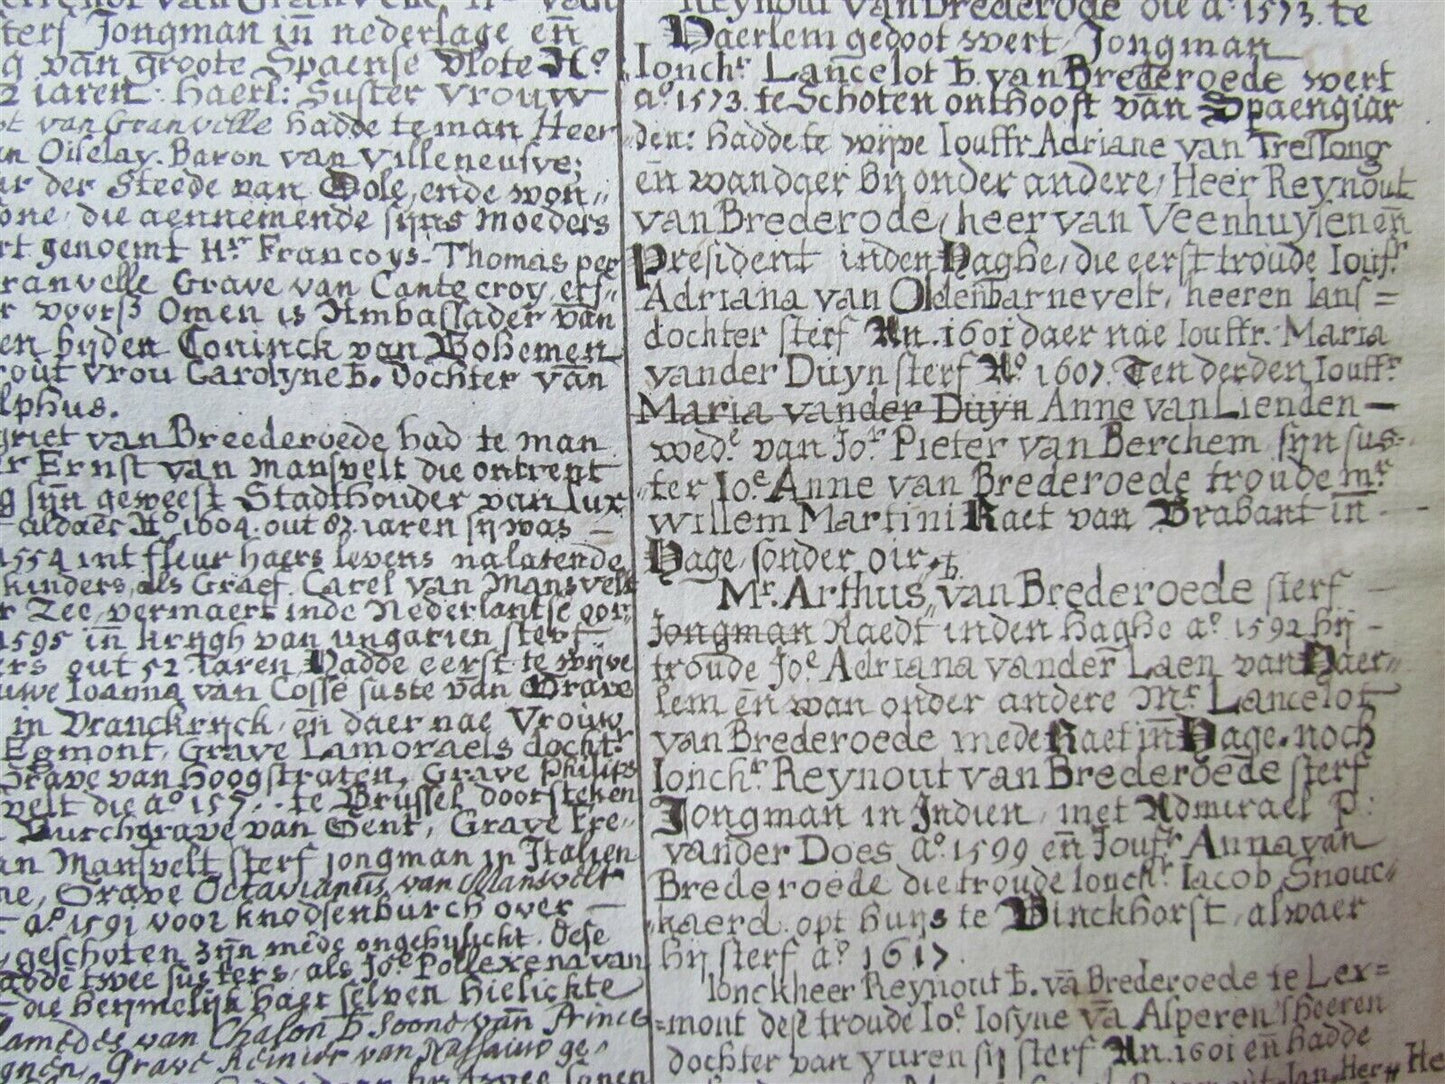 sterf Jongman in nederlage en
van groote Spaense Vlote Aº
iaren. haerl: Suster vrouw
van Granville hadde te man Heer
Oiselay. Baron van Villeneufve;
der Steede van Dole, ende won„
die aennemende sijns Moeders
genoemt Hr Francoys-Thomas per
Granvelle Grave van Cantecroy, erf„
voorß Omen is Ambassader van
bijden Coninck van Bohemen
vrou Carolyne b. dochter van
lphus.
griet van Breederoede had te man
Ernst van Mansvelt die ontrent
sijn geweest Stadthouder van Lux
aldaer Aº 1604. out 87. iaren sij was
1554 int fleur haers levens nalatende
kinders, als Graef. Carel van Mansvelt
Zee, vermaert inde Nederlantse oor„
1595 in krijgh van ungarien sterf
out 52 Iaren, Hadde eerst te wijve
Ioanna van Cosse suste van Grave
in Vranckrijck, en daer nae Vrouw
Egmont, Grave Lamoraels docht.r
Grave van Hoogstraten, Grave Philips
velt die aº 157.. te Brussel doorsteken
Burchgrave van Gent, Grave Fre„
van Mansvelt sterf jongman in Italien
Grave Octavianus van Mansvelt
aº 1591 voor knodsenburch over
geschoten zijn mede ongehylickt. dese
hadde twee susters, als Joe Pollexena van
die heijmelijk haer selven hielickte
Palamedes van Chalon b Soone van Prince
Grave Reinier van Nassauw ge„
Reynout van Brederode die aº 1573. te
Haerlem gedoot wert, Jongman
Ionchr. Lancelot b. van Brederoede wert
aº. 1573. te Schoten onthooft van Spaengiar
den: hadde te wijve Iouffr Adriane van Treslong
en wandaer bij onder andere, Heer Reynout
van Brederode, heer van Veenhuysen en
President inden Haghe, die eerst troude Iouf.r
Adriana van Oldenbarnevelt, heeren Ians=
dochter sterf An. 1601 daer nae Iouffr. Maria
vander Duyn sterf Aº. 1607. Ten derden Iouffr.
Maria vander Duyn Anne van Lienden —
wede. van Jor. Pieter van Berchem sijn sus=
ter Ioe. Anne van Brederoede troude mr.
willem Martini Raet van Brabant in
Hage, sonder oir,
Mr. Arthus„ b. van Brederoede sterf
Jongman Raedt inden Haghe aº. 1592 hij
troude Joe. Adriana vander Laen van Haer„
lem en wan onder andere Mr. Lancelot
van Brederoede mede Raet in Hage. noch
Ionchr. Reynout van Brederoede sterf
Jongman in Indien, met Admirael P:
vander Does aº. 1599 en Joufr. Anna van
Brederoede die troude Ionchr. Iacob Snouc„
kaerd opt huys te Binckhorst, alwaer
hij sterf aº. 1617.
Ionckheer Reynout b. va Brederoede te Lex=
=mont dese troude Ioe. Iosyne va Alperen sheeren
dochter van vuren sij sterf An. 1601 en hadde